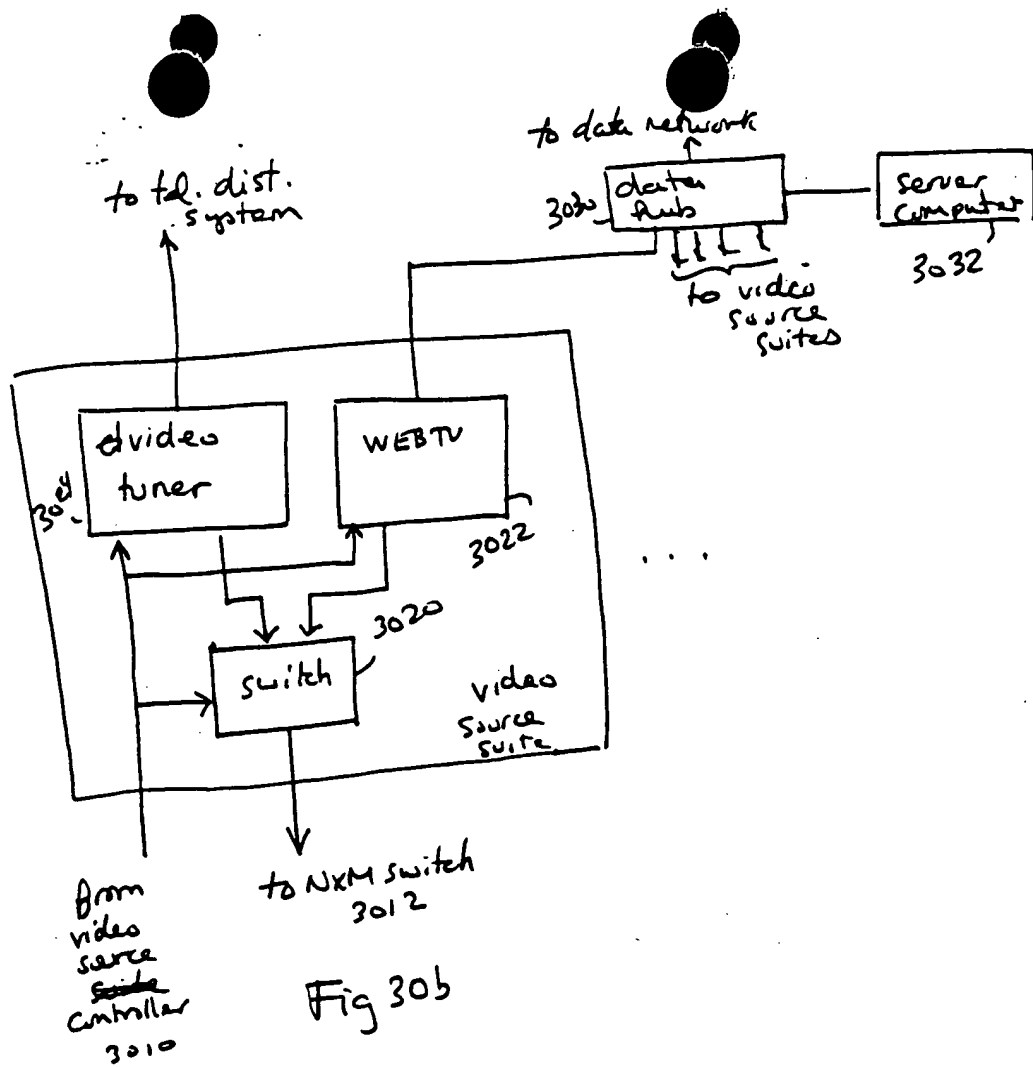 to data network
to tel. dist.
system
3030
data
hub
server
computer
3032
to video
source
suites
video
tuner
WEBTV
3022
3020
switch
video
source
suite
from
video
source
suite
controller
3010
to NxM switch
3012
Fig 30b